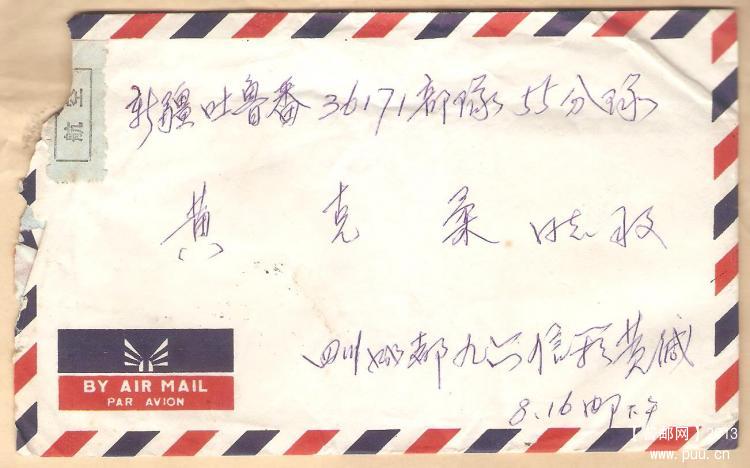 新疆吐鲁番36171部队55分队
航空
黄克柔同志收
四川成都九六信箱黄诚
8.16邮
BY AIR MAIL
PAR AVION
2013
www.puu.cn